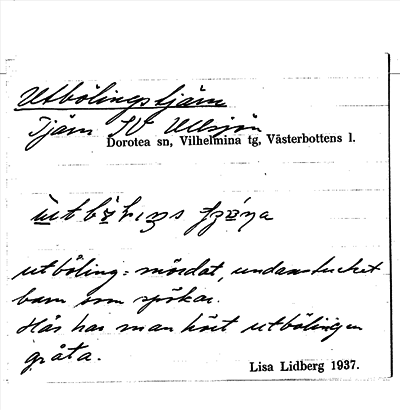 Utbölingstjärn
Tjärn SV Ullsjön
Dorotea sn, Vilhelmina tg, Västerbottens l.
utböling = mördat, undanstucket
barn som spökar.
Här har man hört utbölingen
gråta.
Lisa Lidberg 1937.